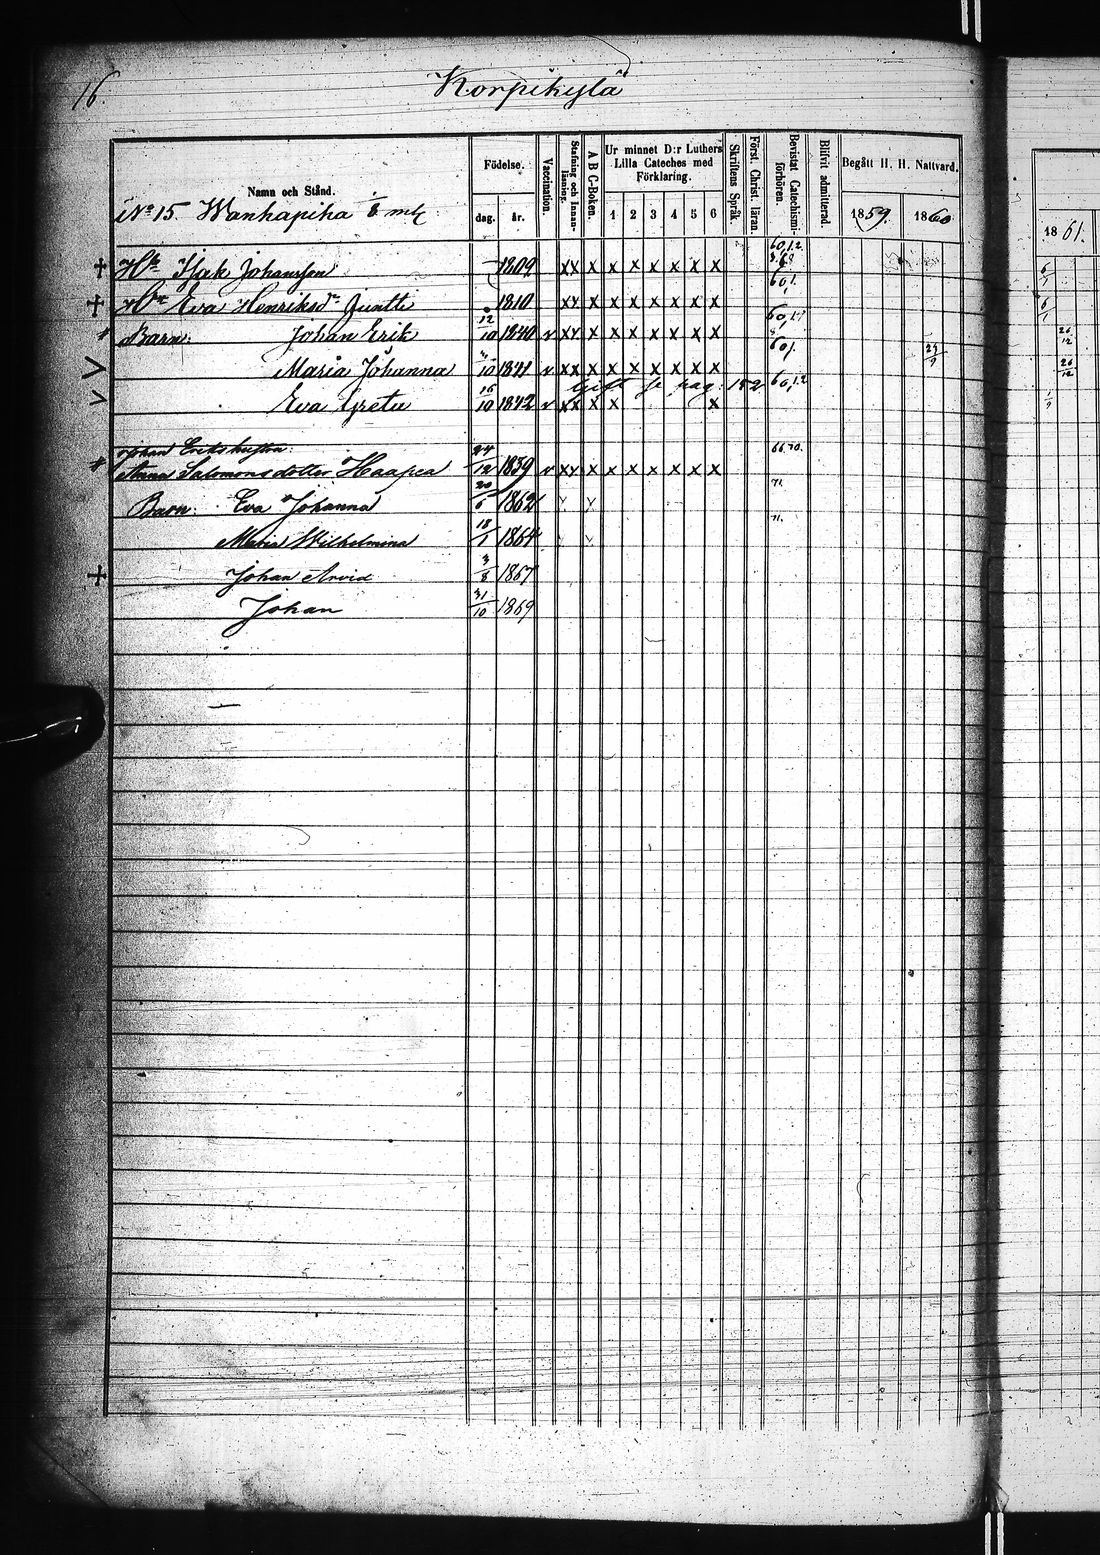 16.
Korpikylä
Namn och Stånd.
Födelse.
dag. år.
Vaccination.
Stafning och Innan-läsning.
A B C-Boken.
Ur minnet D:r Luthers
Lilla Cateches med
Förklaring.
1 2 3 4 5 6
Skriftens Språk.
Först. Christ. läran.
Bevistat Catechismi-förhören.
Blifvit admitterad.
Begått H. H. Nattvard.
1859. 1860 1861.
No 15. Wanhapiha
60,1,2
+ Isak Johansson 1809 xx x x x x x x x
60,1.
+ Eva Henriksdr Juntti 1810 xx x x x x x x x
Barn: Johan Erik 12/10 1840 v xx x x x x x x x 26/12
60,1.
V Maria Johanna 10 1841 v xx x x x x x x x 24/9 26/12
Gift se pag: 152 60,1,2
V Eva Greta 15/10 1842 v xx x x x
Johan Eriks hustru: 66 70.
Anna Salomonsdotter Haapa 24/12 1839 v xx x x x x x x x
71
Barn: Eva Johanna 20/6 1862
71.
Maria Wilhelmina 18/1 1864
+ Johan Arvid 3/8 1867
Johan 31/10 1869